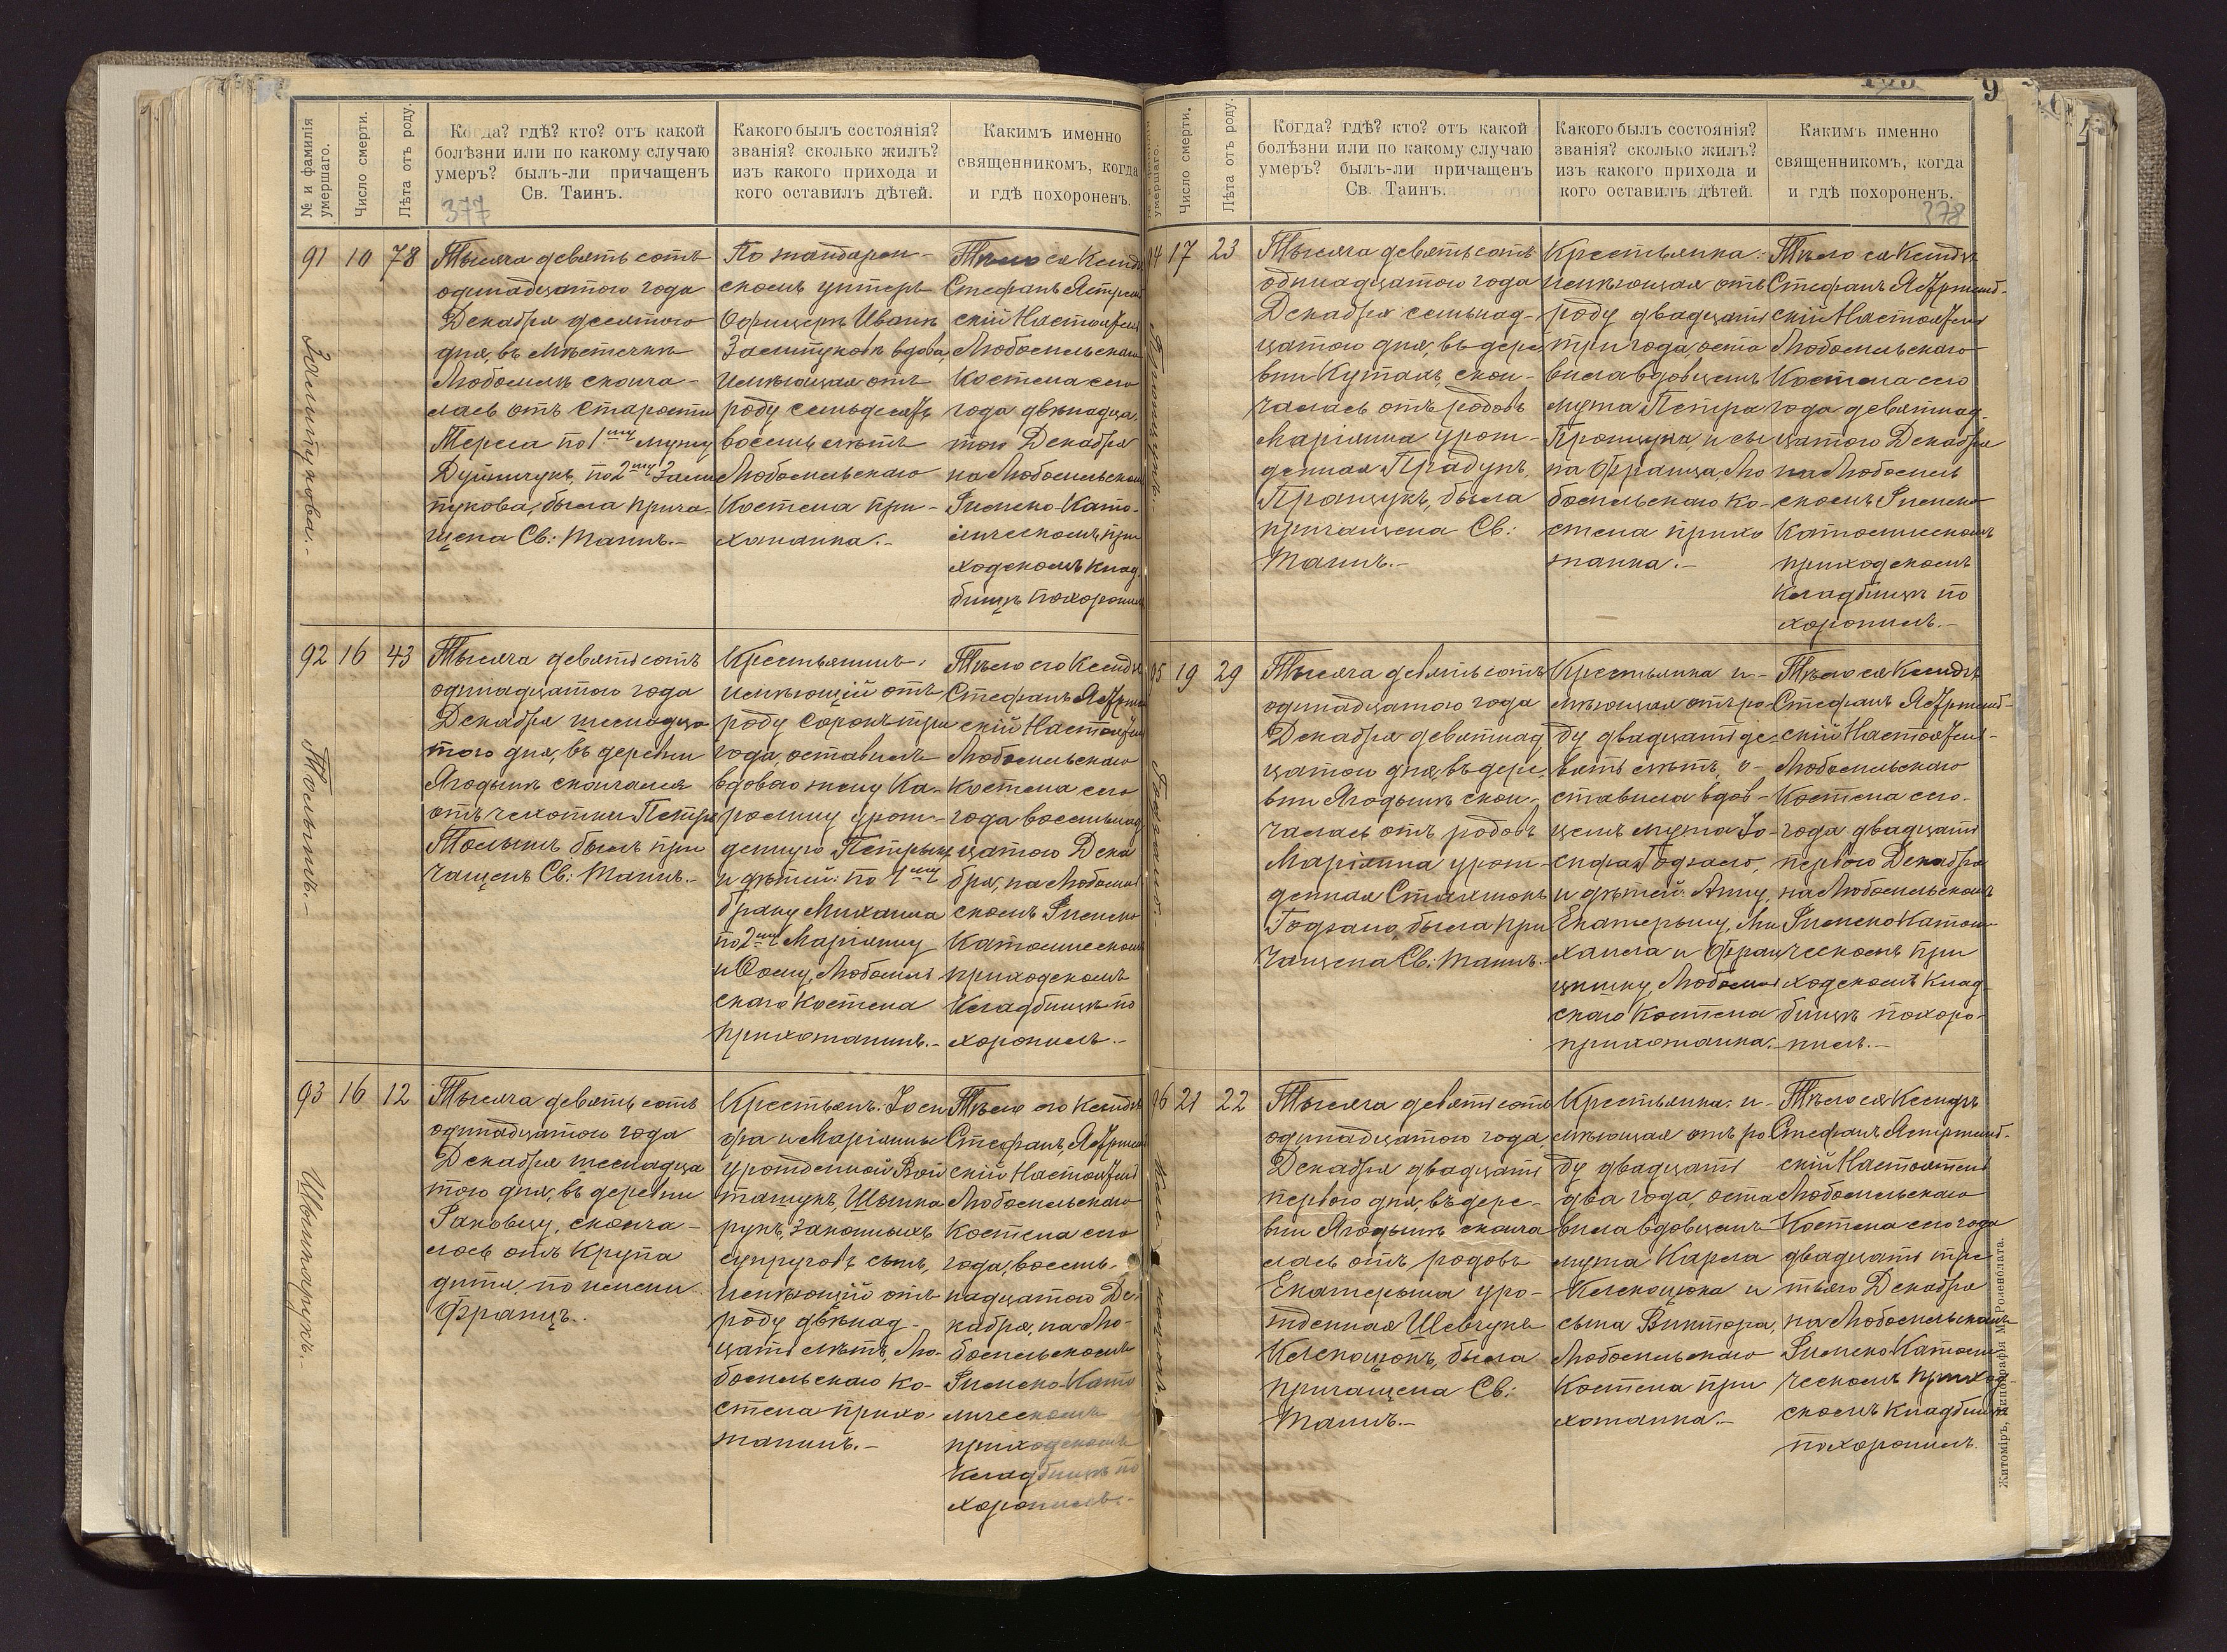 № и фамилія умершаго.
Число смерти.
Лѣта отъ роду.
Когда? гдѣ? кто? отъ какой
болѣзни или по какому случаю
умеръ? былъ-ли причащенъ
Св. Таинъ.
377
Какого былъ состоянія?
званія? сколько жилъ?
изъ какого прихода и
кого оставилъ дѣтей.
Какимъ именно
священникомъ, когда
и гдѣ похороненъ.
91
10
78
Тысяча девять сотъ
одинадцатого года
Декабря десятого
дня, въ мѣстечкѣ
Любомлѣ сконча-
лась отъ старости
Тереса по 1му мужу
по 2му Зали
тукова, была прича-
щена Св: Таинъ.-
унтеръ
Офицера Ивана
вдова,
имѣющая отъ
роду семьдесятъ
восемь лѣтъ
Любомльскаго
Костела при-
хожанка.-
Тѣло ея Ксендзъ
Стефанъ
скій
Любомльскаго
Костела сего
года двѣнадца
того Декабря
на Любомльскомъ
Римско-Като-
лическомъ при
ходскомъ клад
бищѣ похоронилъ
92
16
43
Тысяча девятьсотъ
одинадцатого года
Декабря шеснадца
того дня, въ деревни
Ягодынѣ скончался
отъ чахотки Петръ
былъ при
чащенъ Св: Таинъ.-
Крестьянинъ:
имѣющій отъ
роду сорокъ три
года, оставилъ
вдовою жену Ка-
ролину урож-
денную
и дѣтей: по 1му
браку Михаила
по 2му Маріянну
и Любомль
скаго Костела
прихожанинъ.-
Тѣло его Ксендзъ
Стефанъ
скій
Любомльскаго
Костела сего
года восемьнад
цатого Дека
бря, на Любомль
скомъ Римско
Католическомъ
приходскомъ
Кладбищѣ по
хоронилъ.-
93
16
12
Тысяча девять сотъ
одинадцатого года
Декабря шеснадца
того дня, въ деревни
Раковцу, сконча-
лось отъ Крупа
дитя, по имени
Францъ.
Крестьянъ: Іоси
фа и Маріянны
урожденной Вой
законныхъ
супруговъ сынъ,
имѣющій отъ
роду двѣнад-
цать лѣтъ, Лю-
бомльскаго Ко-
стела прихо
жанинъ.-
Тѣло его Ксендзъ
Стефанъ
скій
Любомльскаго
Костела сего
года, восемь-
надцатого Де-
кабря, на Лю-
бомльскомъ
Римско-Като
лическомъ
приходскомъ
Кладбищѣ по
хоронилъ.-
9
умершаго.
Число смерти.
Лѣта отъ роду.
Когда? гдѣ? кто? отъ какой
болѣзни или по какому случаю
умеръ? былъ-ли причащенъ
Св. Таинъ.
Какого былъ состоянія?
званія? сколько жилъ?
изъ какого прихода и
кого оставилъ дѣтей.
Какимъ именно
священникомъ, когда
и гдѣ похороненъ.
378
17
23
Тысяча девятьсотъ
одинадцатого года
Декабря семьнад-
цатого дня, въ дере
вни скон-
чалась отъ родовъ
Маріянна урож-
денная
была
причащена Св:
Таинъ.-
Крестьянка:
имѣющая отъ
роду двадцать
три года, оста
вила вдовцемъ
мужа Петра
и сы
на Франца, Лю
бомльскаго Ко-
стела прихо
жанка.-
Тѣло ея Ксендзъ
Стефанъ
скій
Любомльскаго
Костела сего
года девятнад
цатого Декабря
на Любомль
скомъ Римско
Католическомъ
приходскомъ
Кладбищѣ по
хоронилъ.-
19
29
Тысяча девятьсотъ
одинадцатого года
Декабря девятнад
цатого дня, въ дере
вни Ягодынѣ скон-
чалась отъ родовъ
Маріянна урож-
денная
была при
чащена Св: Таинъ.
Крестьянка и-
мѣющая отъ ро
ду двадцать де-
вять лѣтъ, о-
ставила вдов-
цемъ мужа Іо-
сифа
и дѣтей: Анну,
Екатерину, Ми
хаила и Фран
цишку, Любомль
скаго Костела
прихожанка.-
Тѣло ея Ксендзъ
Стефанъ
скій
Любомльскаго
Костела сего-
года двадцать
перваго Декабря
на Любомльскомъ
Римско Католи
ческомъ при
ходскомъ Клад-
бищѣ похоро-
нилъ.-
21
22
Тысяча девятьсотъ
одинадцатого года
Декабря двадцать
первого дня, въ дере-
вни Ягодынѣ сконча
лась отъ родовъ
Екатерина уро-
жденная Шевчукъ
была
причащена Св:
Таинъ.-
Крестьянка: и-
мѣющая отъ ро
ду двадцать
два года, оста
вила вдовцемъ
мужа Карла
и
сына Виктора,
Любомльскаго
Костела при
хожанка.-
Тѣло ея Ксендзъ
Стефанъ
скій Настоятель
Любомльскаго
Костела сего года
двадцать тре
тьяго Декабря
на Любомльскомъ
Римско Католи
ческомъ приход
скомъ кладбищѣ
похоронилъ.
Житоміръ, Типографія М. Розенблата.